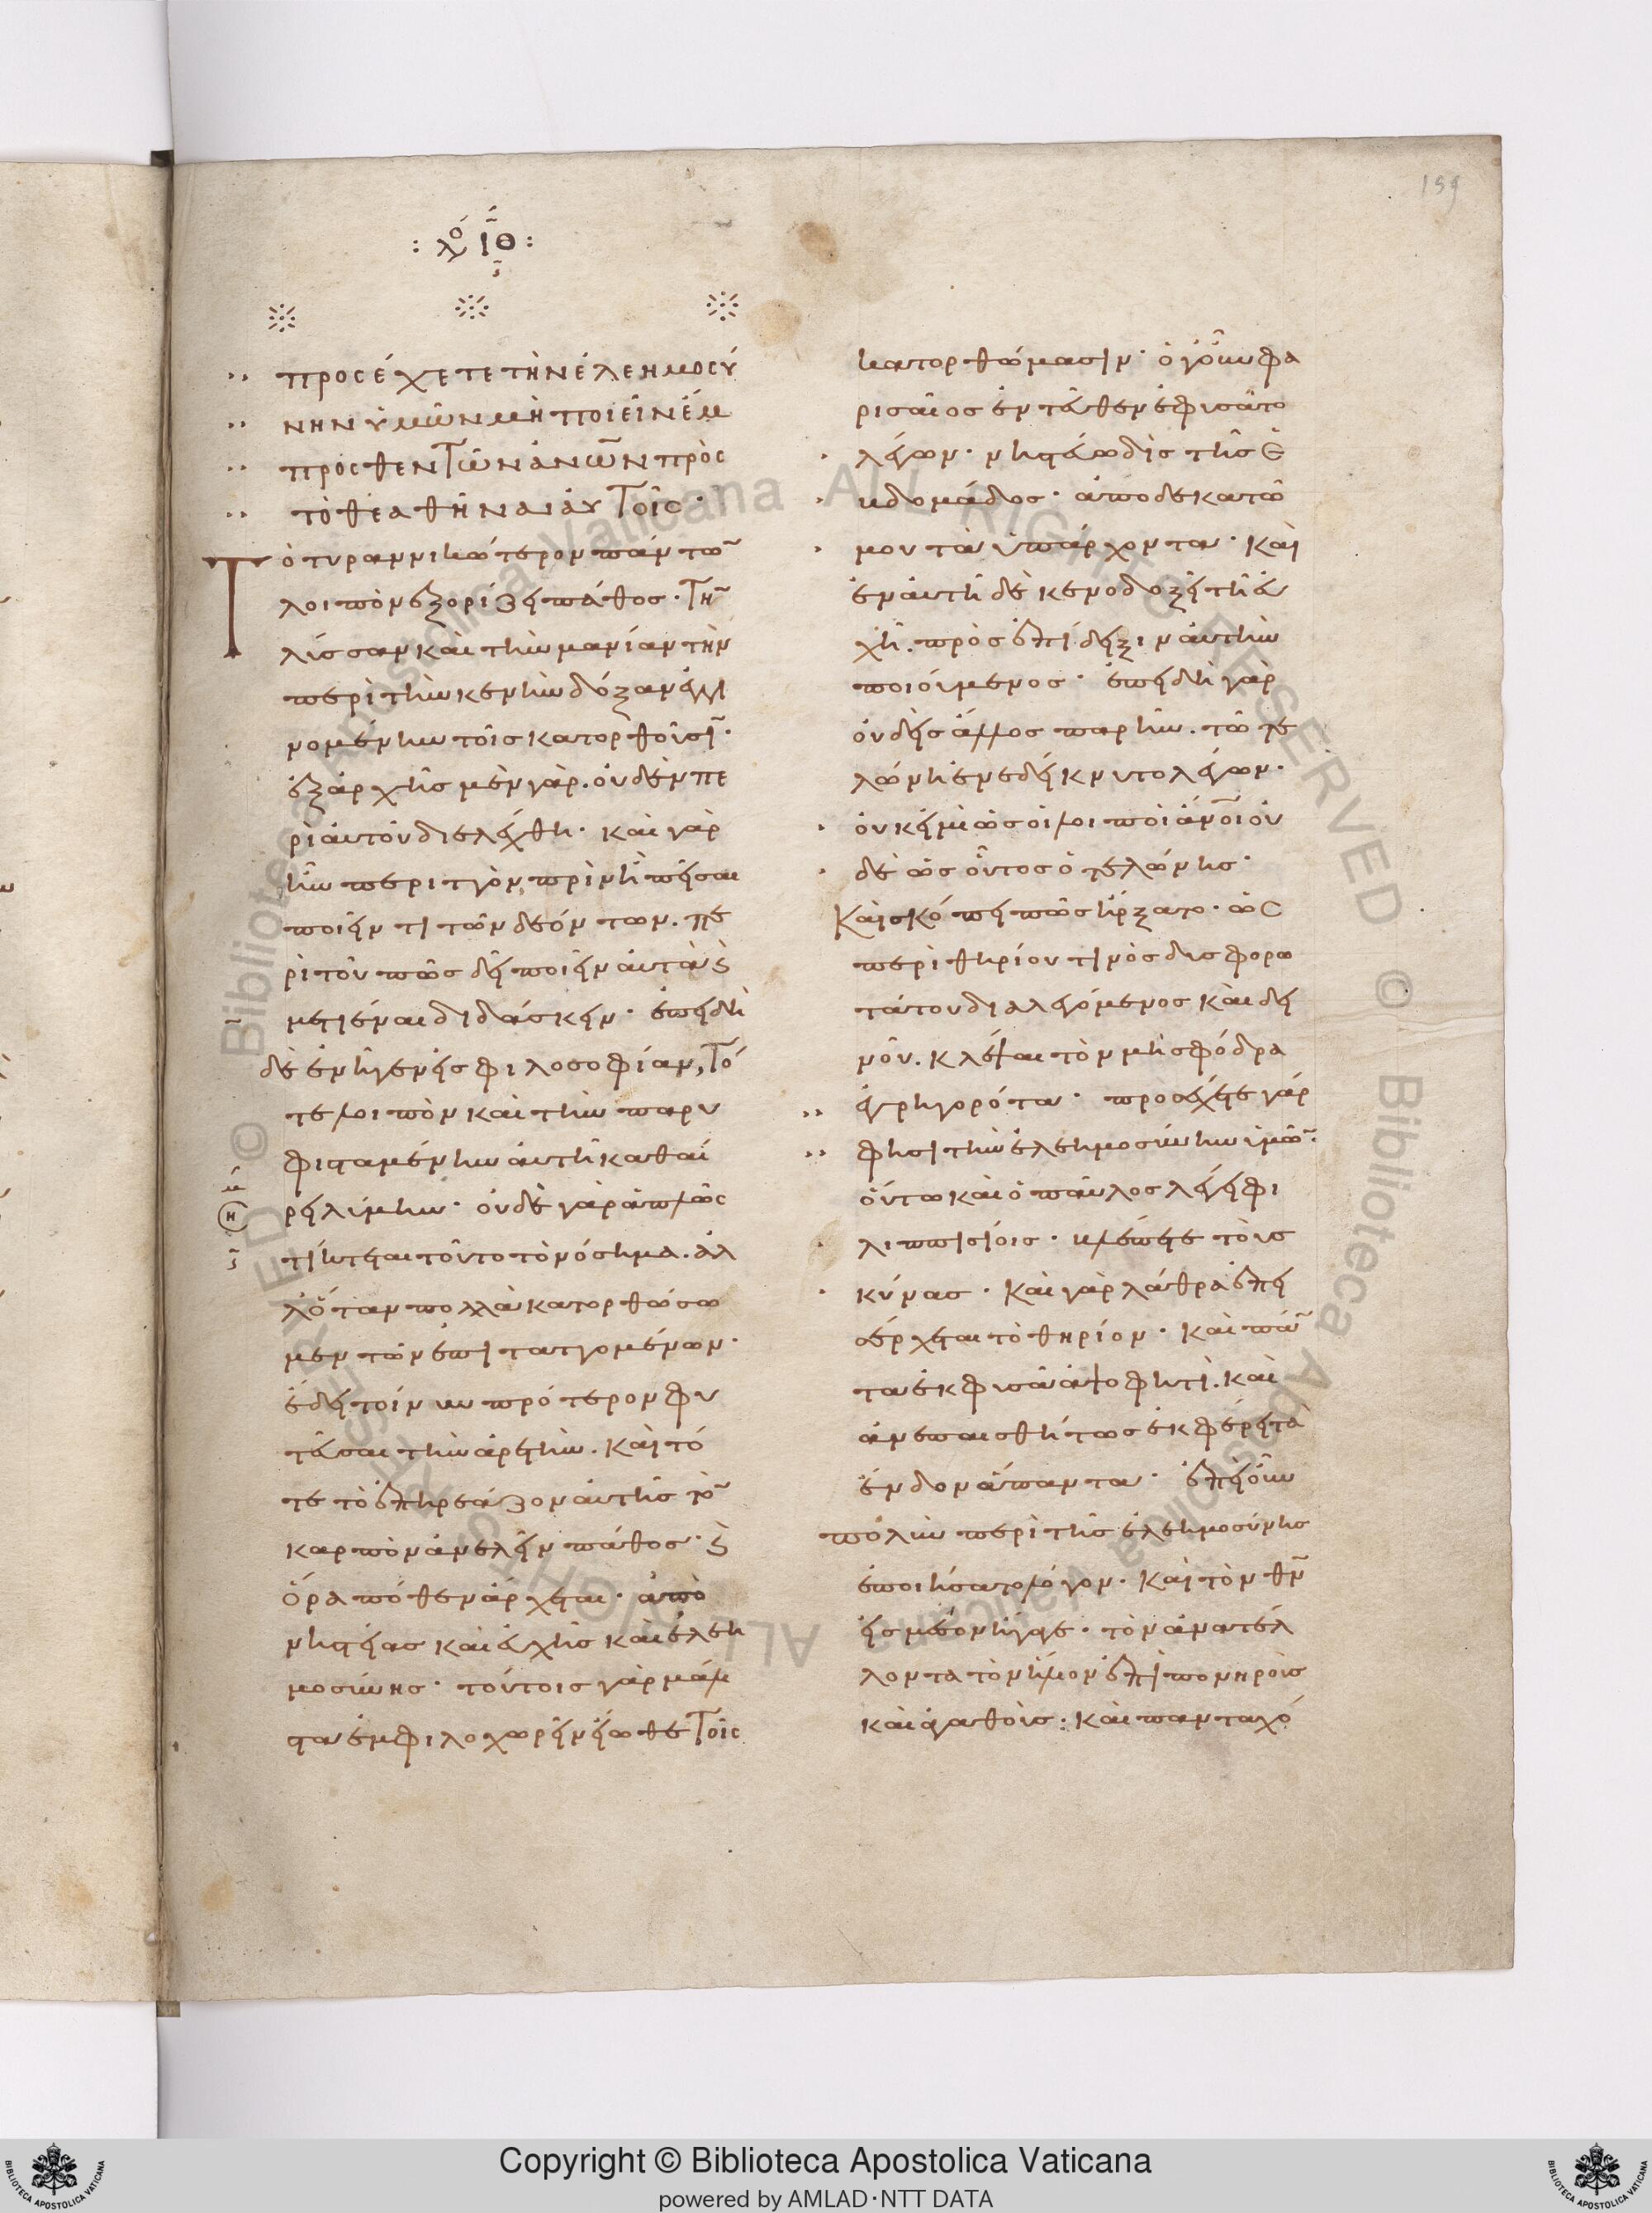 159
: λόγος ΙΘ :
προσέχετε τὴν ἐλεημοσύ
νην ὑμῶν μὴ ποιεῖν ἔμ
προσθεν τῶν ἀνων πρὸς
τὸ θεαθῆναι αὐτοῖς·
Τὸ τυραννικώτερον πάντων
λοιπὸν ἐξορίζει πάθος· τὴν
λύσσαν καὶ τὴν μανίαν τὴν
περὶ τὴν κενὴν δόξαν ἐγγι
νομένην τοῖς κατορθοῦσι·
ἐξαρχῆς μὲν γὰρ. οὐδὲν πε
ρὶ αὐτοῦ διελέχθη· καὶ γὰρ
ἦν περιττὸν, πρὶν ἢ πεῖσαι
ποιεῖν τι τῶν δεόντων. πε
ρὶ τοῦ πῶς δεῖ ποιεῖν αὐτὰ καὶ
μετιέναι διδάσκειν· ἐπειδὴ
δὲ ἐνήγαγεν εἰς φιλοσοφίαν, τό
τε λοιπὸν καὶ τὴν παρυ
φισταμένην αὐτῇ καθαι
ρεῖ λύμην· οὐδὲ γὰρ ἁπλῶς
τίκτεται τοῦτο τὸ νόσημα. ἀλ
λ' ὅταν πολλὰ κατορθώσω
μεν τῶν ἐπιταττομένων·
ἔδει τοίνυν πρότερον φυ
τεῦσαι τὴν ἀρετὴν. καὶ τό
τε τὸ ἐπηρεάζον αὐτῆς τὸν
καρπὸν ἀνελεῖν πάθος· καὶ
ὅρα πόθεν ἄρχεται· ἀπὸ
νηστείας καὶ εὐχῆς καὶ ἐλεη
μοσύνης· τούτοις γὰρ μάλι
στα ἐμφιλοχωρεῖν εἴωθε τοῖς
κατορθώμασιν· ὁ γοῦν φα
ρισαῖος ἐντεῦθεν ἐφυσᾶτο
λέγων· νηστεύω δὶς τῆς ἑ
βδομάδος· ἀποδεκατῶ
μου τὰ ὑπάρχοντα· καὶ
ἐν αὐτῇ δὲ κενοδοξεῖ τῇ εὐ
χῇ. πρὸς ἐπίδειξιν αὐτὴν
ποιούμενος· ἐπειδὴ γὰρ
οὐδεὶς ἄλλος παρῆν. τῷ τε
λώνῃ ἐνεδείκνυτο λέγων·
οὐκ εἰμὶ ὡς οἱ λοιποὶ ἀνοι οὐ
δὲ ὡς οὗτος ὁ τελώνης·
Καὶ σκόπει πῶς ἤρξατο· ὡς
περὶ θηρίου τινὸς δυσφορω
τάτου διαλεγόμενος καὶ δει
νοῦ. κλέψαι τὸν μὴ σφόδρα
ἐγρηγορότα· προσέχετε γάρ
φησι τὴν ἐλεημοσύνην ὑμῶν·
οὕτω καὶ ὁ παῦλος λέγει φι
λιππισίοις· βλέπετε τοὺς
κύνας· καὶ γὰρ λάθρα ἐπει
σέρχεται τὸ θηρίον· καὶ πάν
τα ἐκφυσᾶ ἀψοφητὶ. καὶ
ἀνεπαισθήτως ἐκφέρει τὰ
ἔνδον ἅπαντα· ἐπεὶ οὖν
πολὺν περὶ τῆς ἐλεημοσύνης
ἐποιήσατο λόγον· καὶ τὸν θν
εἰς μέσον ἤγαγε· τὸν ἀνατέλ
λοντα τὸν ἥλιον ἐπὶ πονηροὺς
καὶ ἀγαθοὺς: καὶ πανταχό
Copyright © Biblioteca Apostolica Vaticana
powered by AMLAD·NTT DATA